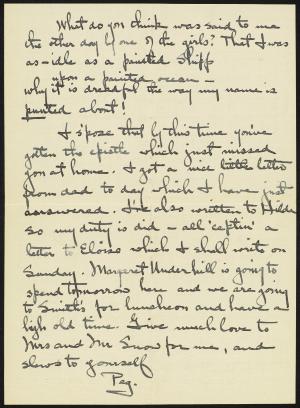 What do you think was said to me
the other day by one of the girls? That I was
as-dle as a painted Shipp
upon a painted ocean —
why it is dreadful the way my name is
punted about!
I s'pose that by this time you've
gotten the epistle which just missed
you at home. I got a nice little letter
from dad to day which I have just
answered. I've also written to Hilda
so my duty is did — all 'ceptin' a
letter to Eloise which I shall write on
Sunday. Margaret Underhill is going to
spend tomorrow here and we are going
to Smith's for luncheon and have a
high old time. Give much love to
Mrs and Mr Snow for me, and
slews to yourself
Peg.